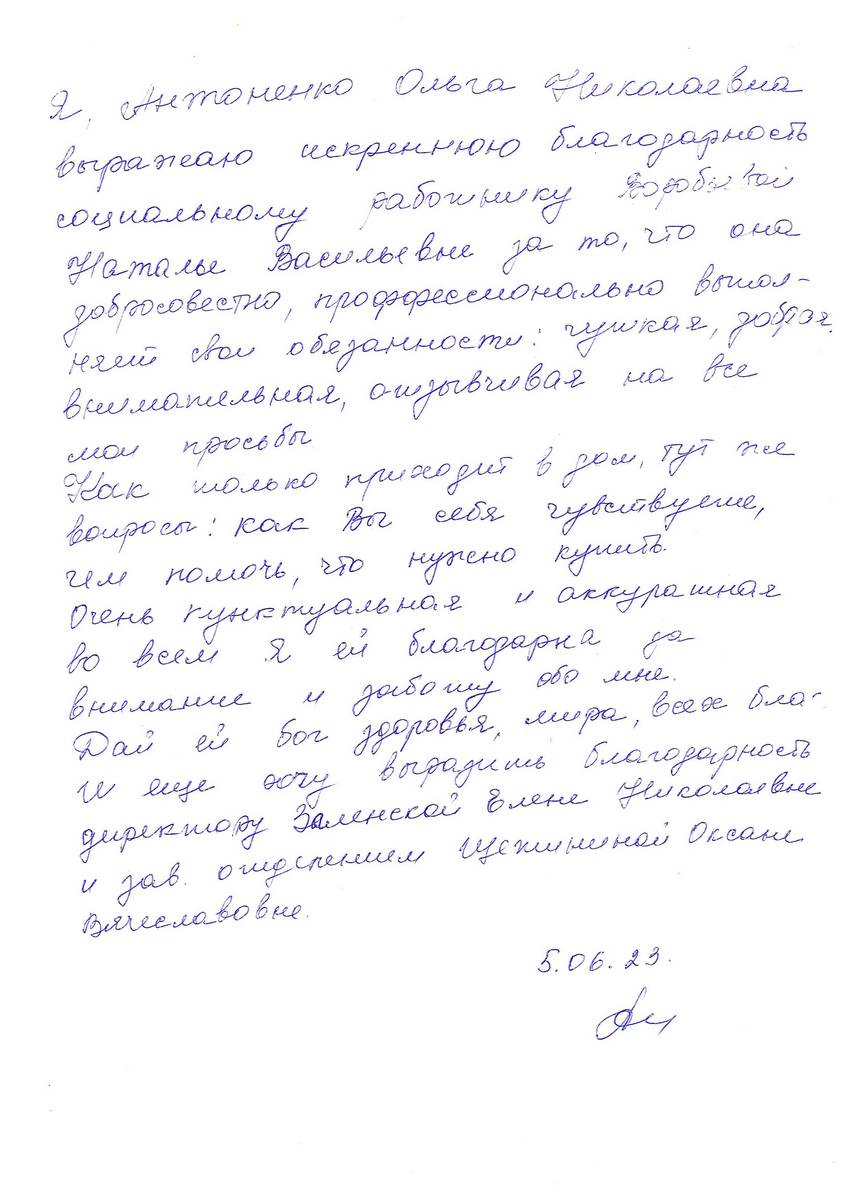 Я, Антоненко Ольга Николаевна
выражаю искреннюю благодарность
социальному работнику
Наталье Васильевне за то, что она
добросовестно, профессионально выпол-
няет свои обязанности: чуткая, добрая,
внимательная, отзывчивая на все
мои просьбы
Как только приходит в дом, тут же
вопросы: как Вы себя чувствуете,
чем помочь, что нужно купить.
Очень пунктуальная и аккуратная
во всем Я ей благодарна за
внимание и заботу обо мне.
Дай ей бог здоровья, мира, всех благ.
И еще хочу выразить благодарность
директору Заленской Елене Николаевне
и зав. отделением Оксане
Вячеславовне.
5.06.23.